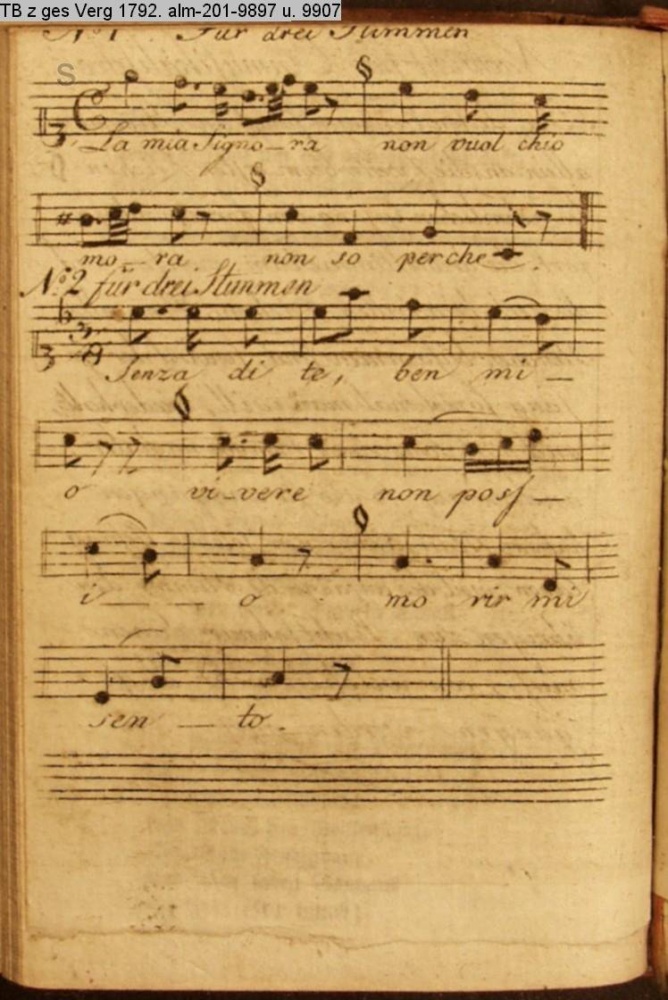 TB z ges Verg 1792. alm-201-9897 u. 9907
N:o 1 Für drei Stimmen
S
La mia Signo_ra non vuol chio
mo_ra non so perche
N:o 2 für drei Stimmen
Senza di te, ben mi_
o vi_vere non poss_
i_ _o mo rir mi
sen_to.